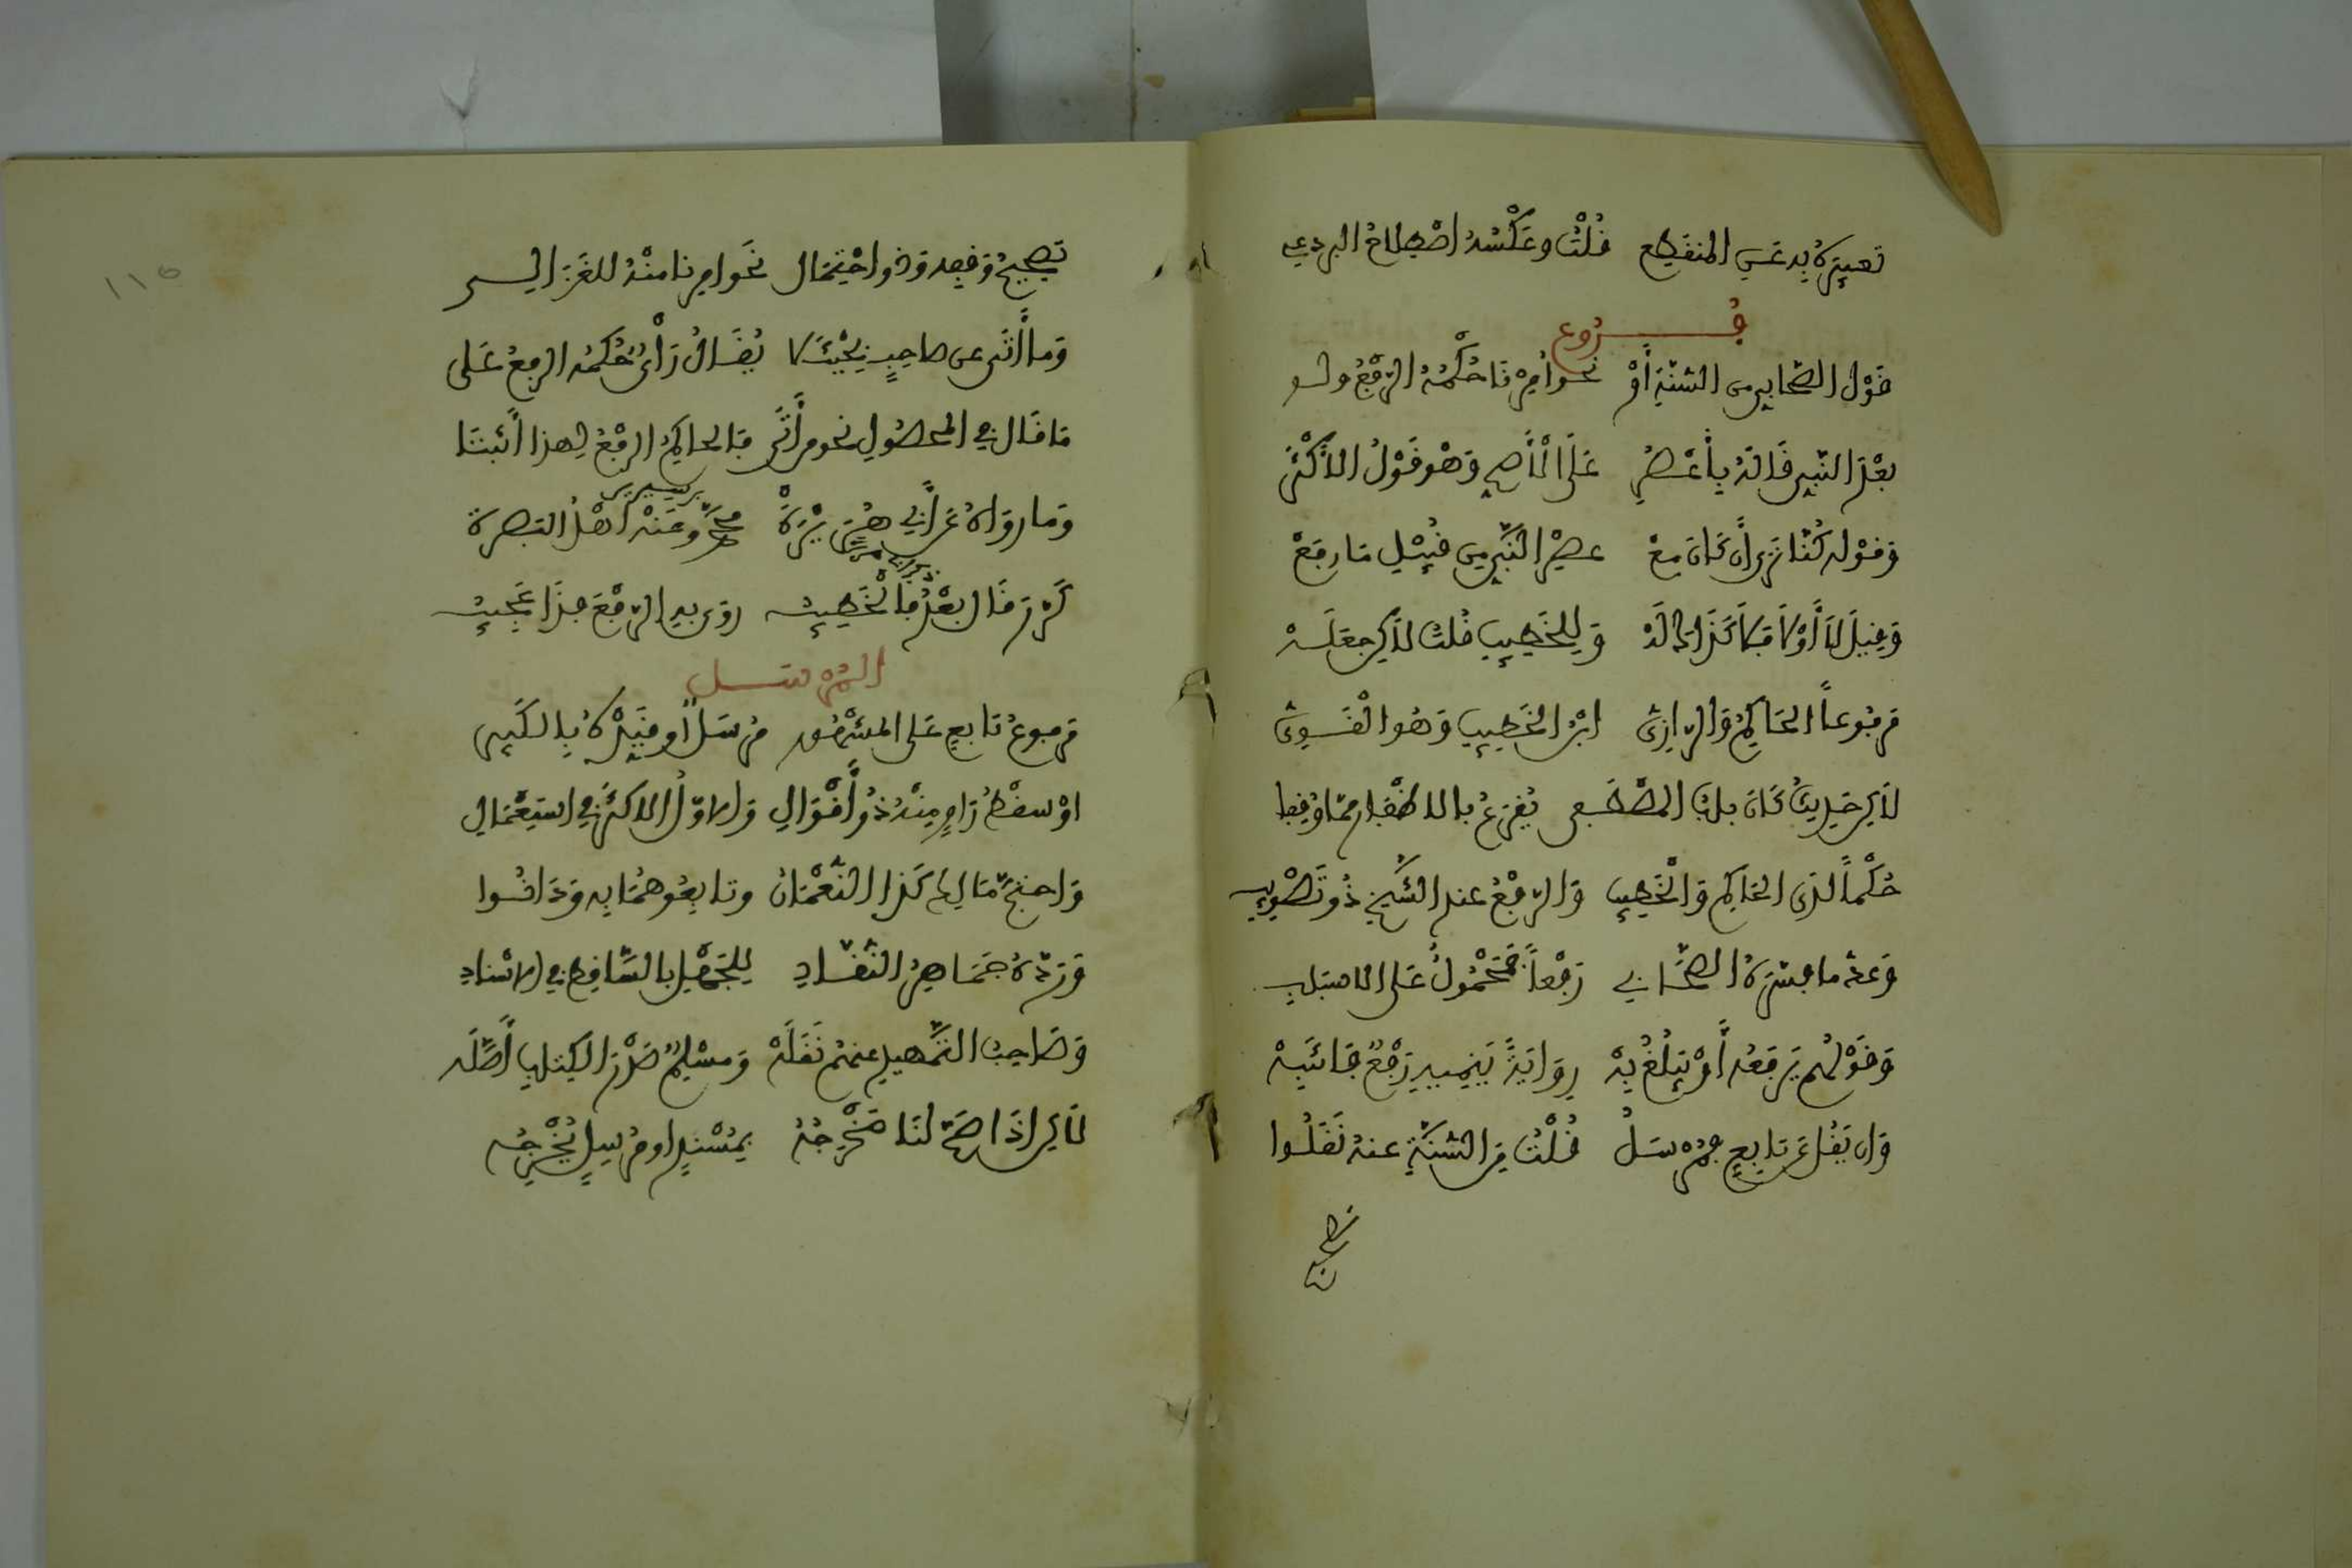 تعبيره به عن المنقطع قلت وعكسه اصطلاح البردعي
فروع
قول الصحابي من السنة أو نحو أمرنا حكمه الرفع ولو
بعد النبي قاله بأعصر على الأصح وهو قول الأكثر
وقوله كنا نرى إن كان مع عصر النبي من قبيل ما رفع
وقيل لا أولا فلا كذاك له وللخطيب قلت لكن جعله
مرفوعاً الحاكم والرازي ابن الخطيب وهو القوي
لكن حديث كان باب المصطفى يقرع بالاظفار مما وقفا
حكماً لدى الحاكم والخطيب والرفع عند الشيخ ذو تصويب
وعد ما فسره الصحابي رفعاً فمحمول على الاسباب
وقولهم يرفعه أو يبلغ به رواية ينميه رفع فانتبه
وان يقل عن تابع فمرسل قلت من السنة عنه نقلوا
تصحيح وقفه وذو احتمال نحو امرنا منه للغزالي
وما أتى عن صاحب بحيث لا يقال رأيٌ حكمه الرفع على
ما قال في المحصول نحو من أتى فالحاكم الرفع لهذا أثبتا
وما رواه عن أبي هريرة محمد وعنه أهل البصرة
بن سيرين
كرر قال بعد فالخطيب روى به الرفع وذا عجيب
المرسل
مرفوع تابع على المشهور مرسل أو قيده بالكبير
او سقط راو منه ذو أقوال والاول الاكثر في استعمال
واحتج مالك كذا النعمان وتابعوهما به ودانوا
ورده جماهر النقاد للجهل بالساقط في الاسناد
وصاحب التمهيد عنهم نقله ومسلم صدر الكتاب أصله
لكن اذا صح لنا مخرجه بمسند او مرسل يخرجه